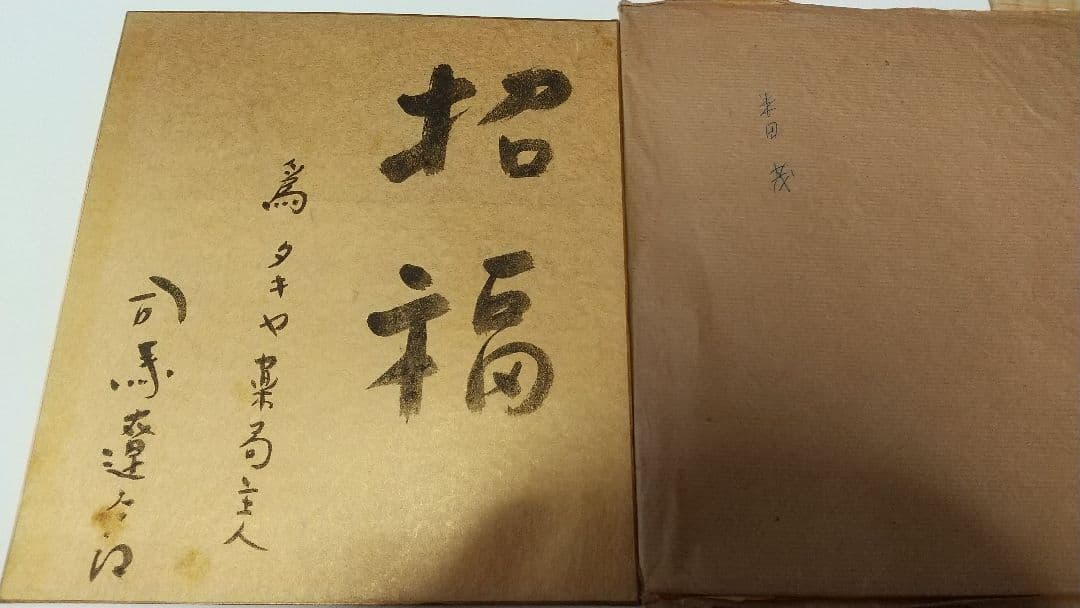 招福
為 タキヤ薬局主人
司馬遼太郎
米田 茂